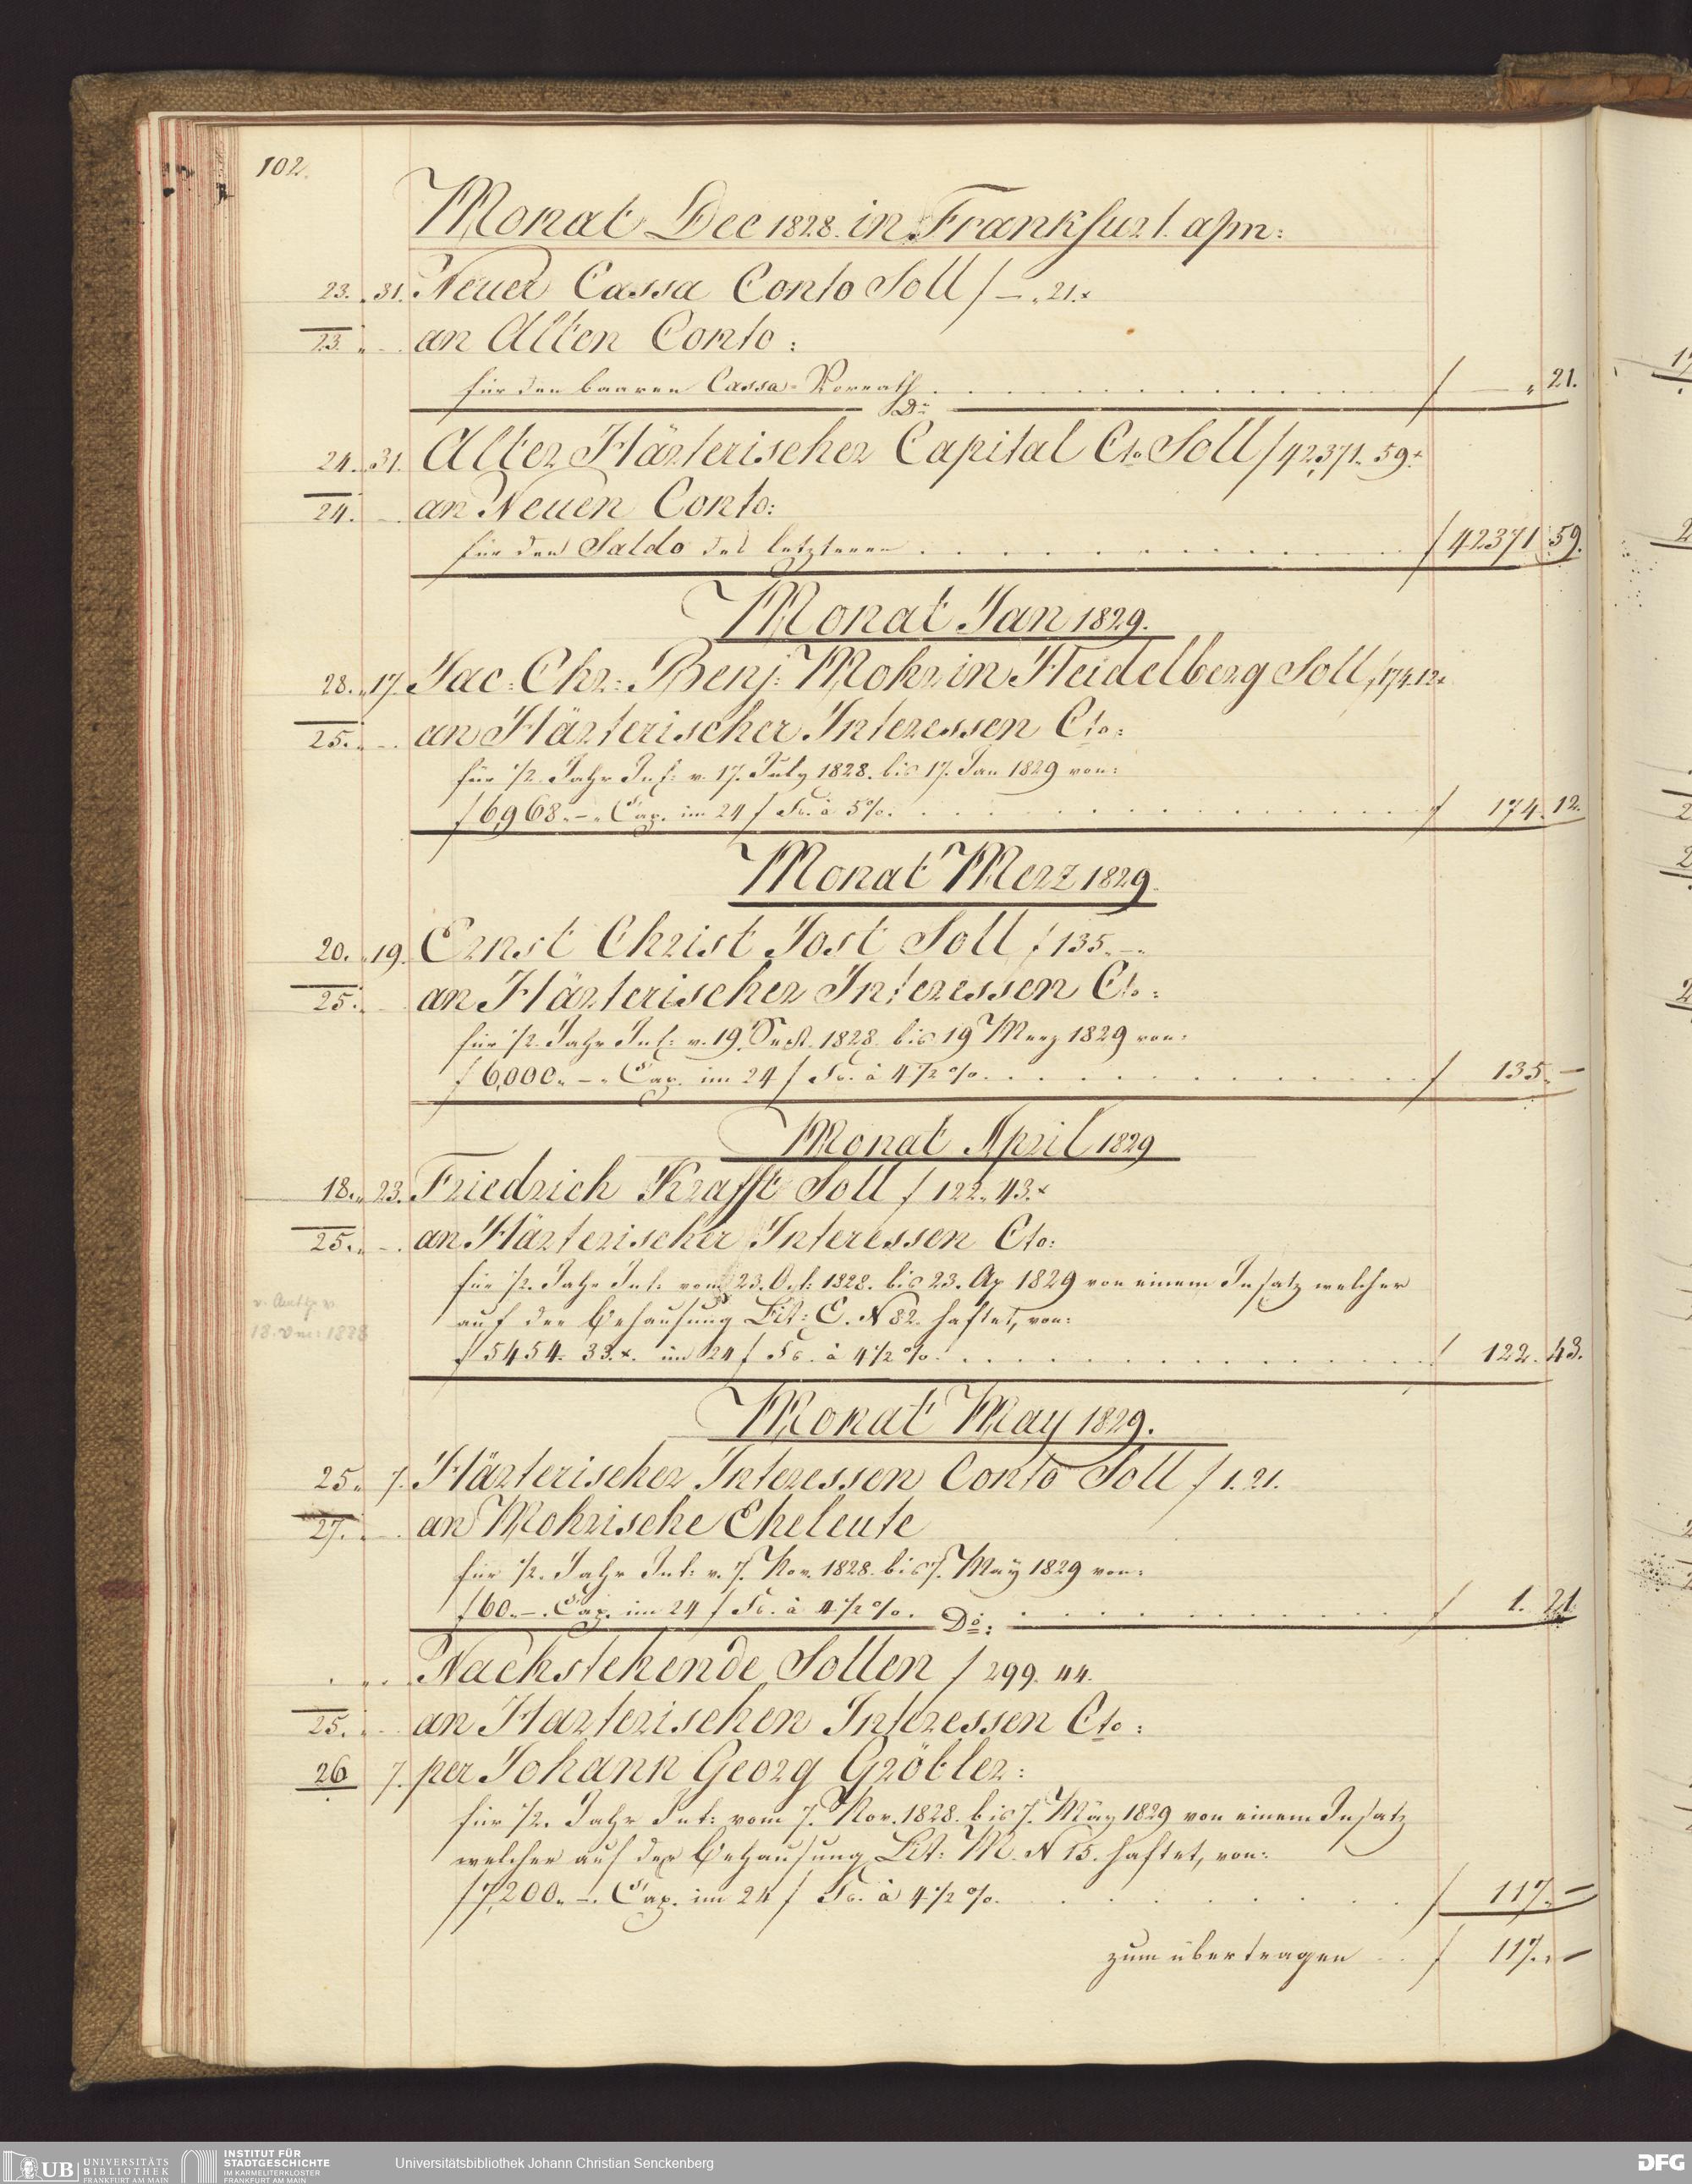 102.
Monat Dec 1828. in Frankfurt. a/m:
23. 31. Neuer Cassa Conto Soll f — „ 21. x
23. an Alten Conto:
für den baaren Cassa-Vorrath f — „ 21.
Do
24. 31. Alter Härterischer Capital Cto. Soll f 42,371. 59. x
24. an Neuen Conto:
für den Saldo des letzteren f 42371 59.
Monat Jan 1829.
28. 17. Jac: Chr: Benj: Mohr in Heidelberg Soll f 174. 12 x
25. an Härterischer Interessen Cto:
für 1/2. Jahr Int: v. 17. July 1828. bis 17. Jan 1829 von:
f 6,968. –. Cap. im 24 f Fs. à 5%. f 174. 12.
Monat Merz 1829.
20. 19. Ernst Christ Jost Soll f 135. –.
25. an Härterischer Interessen Cto:
für 1/2. Jahr Int: v. 19. Sept. 1828. bis 19 Merz 1829 von:
f 6,000. –. Cap. im 24 f Fs. à 4 1/2 %. f 135. –
Monat April 1829
18. 23. Friedrich Krafft Soll f 122. 43. x
25. an Härterischer Interessen Cto:
für 1/2. Jahr Int: vom 23. Oct: 1828. bis 23. Ap 1829 von einem Insatz welcher
auf der Behausung Lit: E. N 82. haftet, von:
18. 1828
f 5454. 33. x. im 24 f Fs. à 4 1/2 %. f 122. 43.
Monat May 1829.
25. 7. Härterischer Interessen Conto Soll f 1. 21.
27. an Mohrische Eheleute
für 1/2. Jahr Int: v. 7. Nov. 1828. bis 7. May 1829 von:
f 60. –. Cap. im 24 f Fs. à 4 1/2 %. f 1. 21
Do:
Nachstehende Sollen f 299. 44.
25. an Harterischen Interessen Cto:
26 7. per Johann Georg Gröbler:
für 1/2. Jahr Int: vom 7. Nov. 1828. bis 7. May 1829 von einem Insatz
welcher auf der Behausung Lit: M. N 15. haftet, von:
f 7,200. –. Cap. im 24 f Fs. à 4 1/2 %. f 117. –
zum übertragen f 117. –
UB UNIVERSITÄTS
BIBLIOTHEK
FRANKFURT AM MAIN
INSTITUT FÜR
STADTGESCHICHTE
IM KARMELITERKLOSTER
FRANKFURT AM MAIN
Universitätsbibliothek Johann Christian Senckenberg
DFG